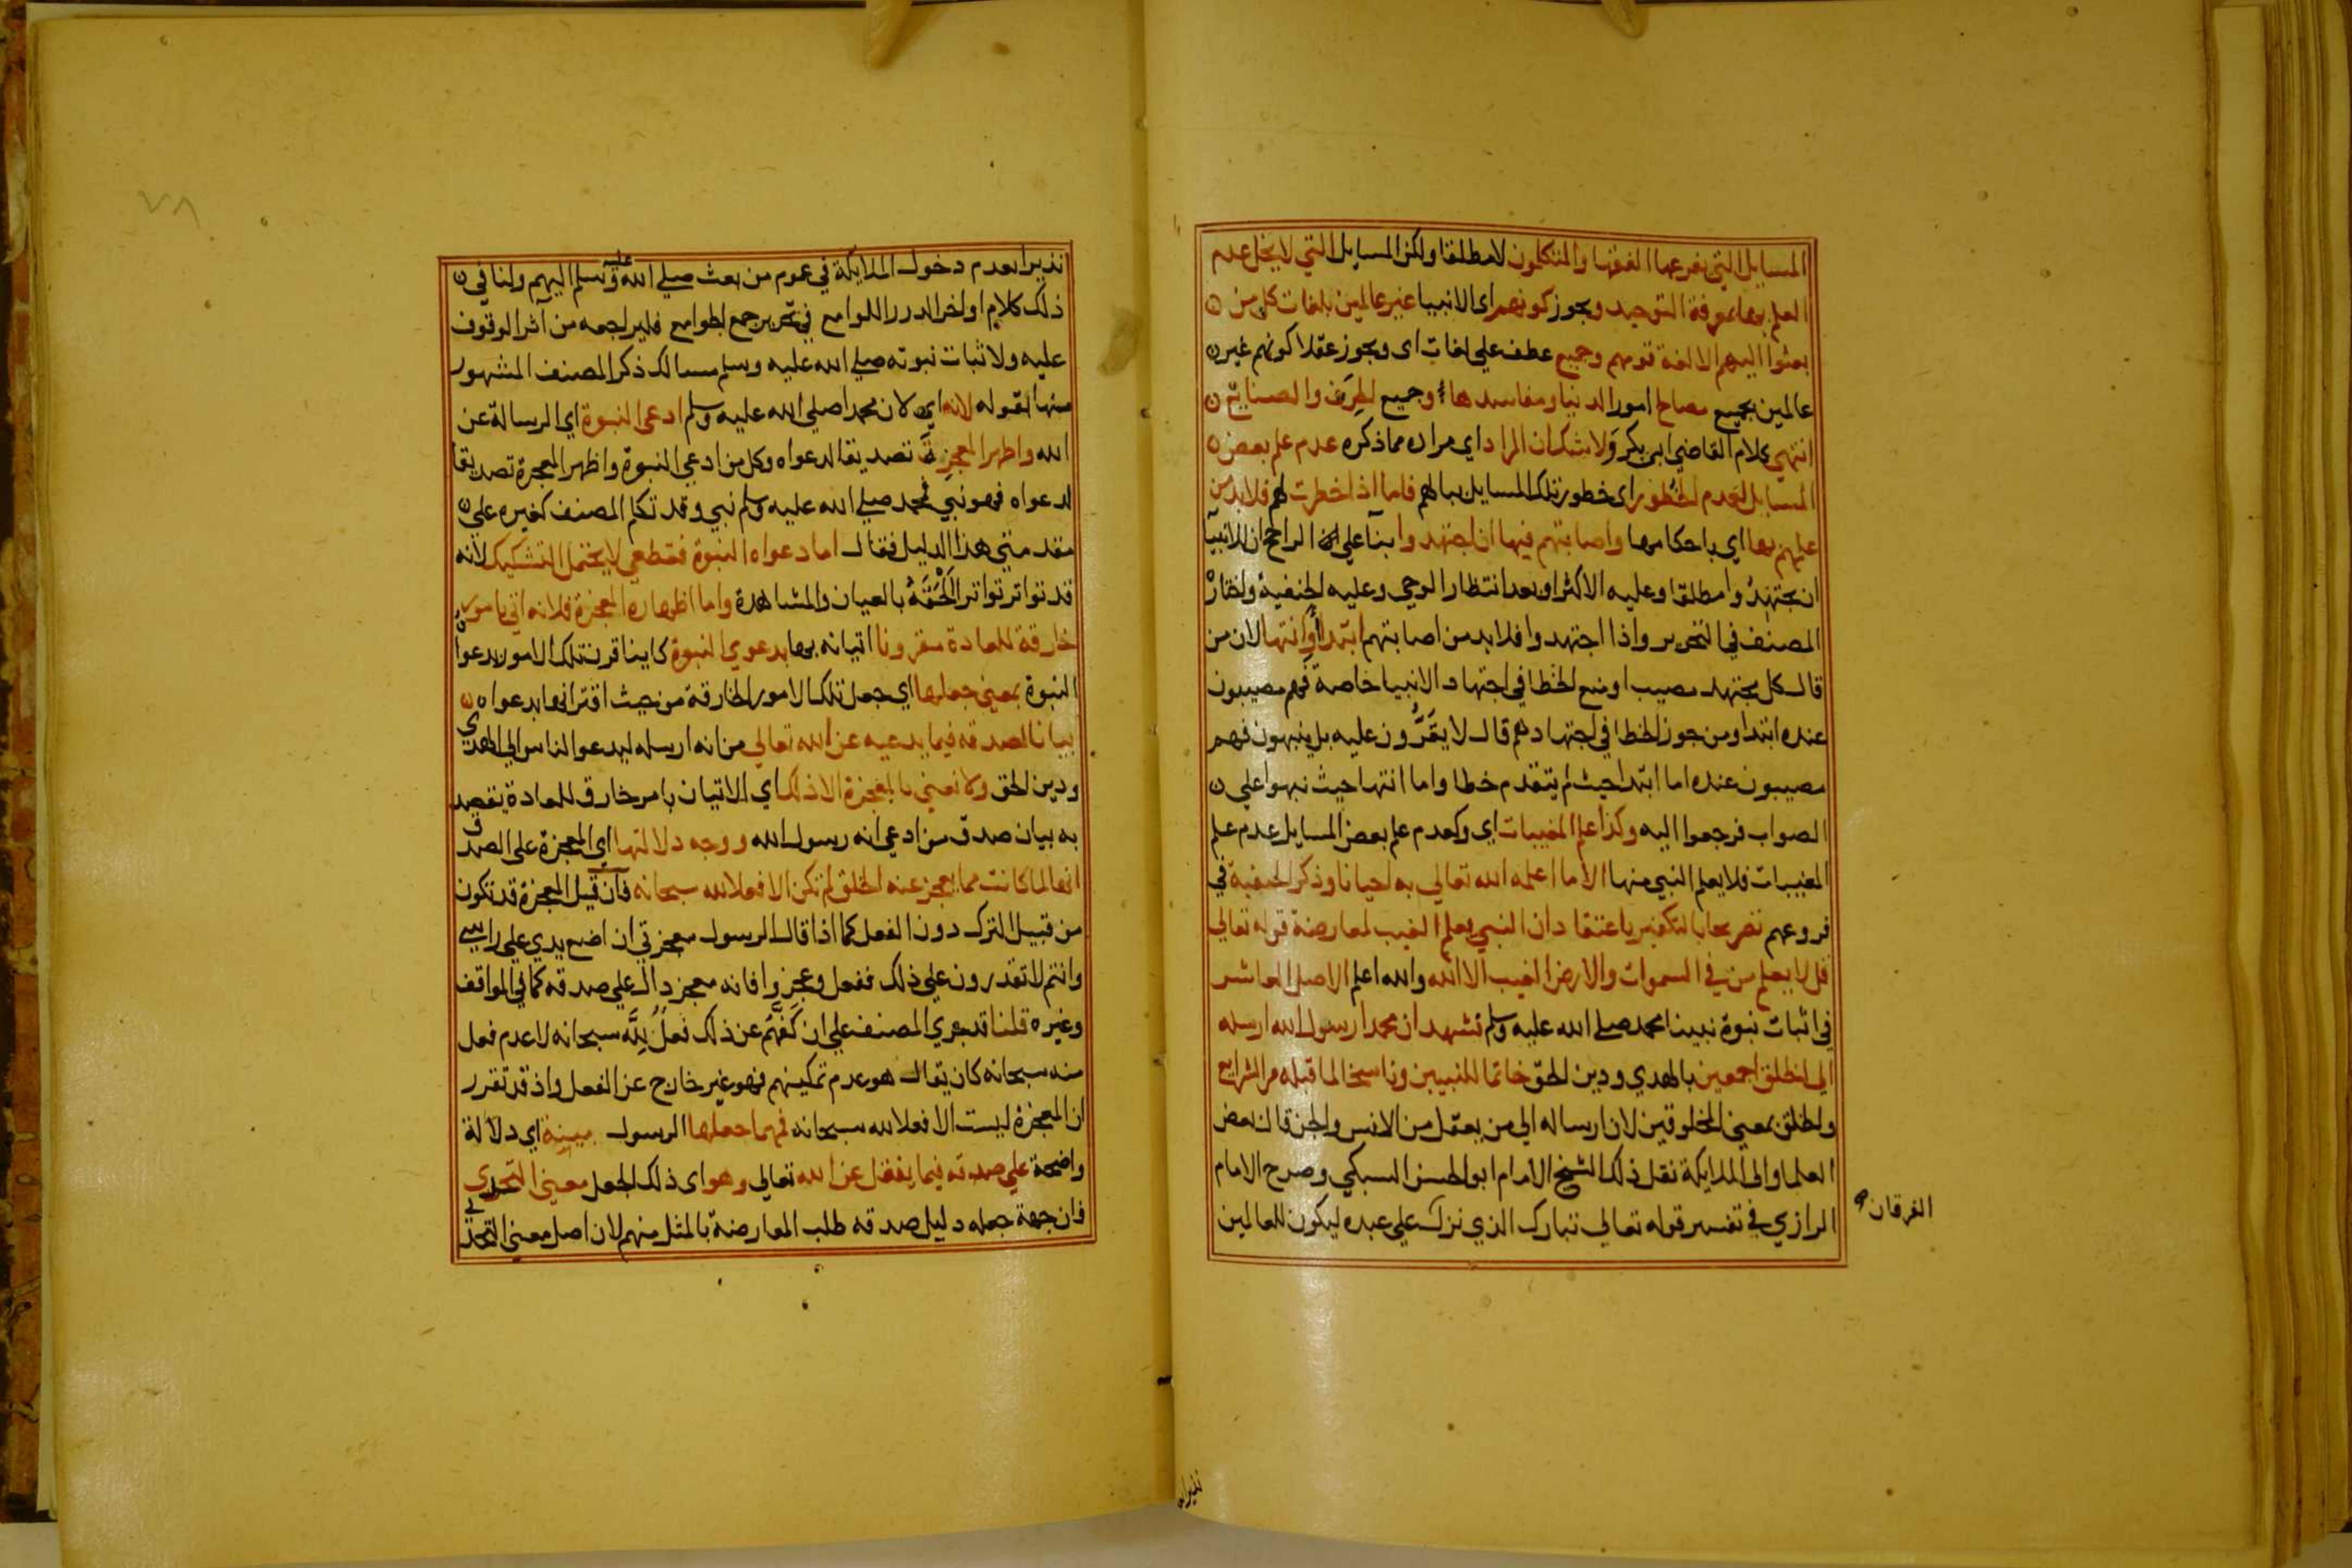 المسايل التي يفرعها الفقها والمتكلمون لا مطلقا ولكن المسايل التي لا يخل عدم
العلم بها بمعرفة التوحيد ويجوز كونهم اى الانبيا غير عالمين بلغات كل من
بعثوا اليهم الا لغة قومهم وجميع عطف على لغات اى ويجوز عقلا كونهم غير
عالمين بجميع مصالح امور الدنيا ومفاسدها وجميع الحرف والصنايع
انتهي كلام القاضي ابى بكر ولا شك ان المراد اي مراده مما ذكره عدم علم بعض
المسايل لعدم الخطور اى خطور تلك المسايل ببالهم فاما اذا خطرت لهم فلا بد من
علمهم بها اي باحكامها واصابتهم فيها ان اجتهدوا بنآ على ان الراجح ان للانبيآ
ان يجتهدوا مطلقا وعليه الاكثر او بعد انتظار الوحي وعليه الحنفية واختاره
المصنف في التحرير واذا اجتهدوا فلا بد من اصابتهم ابتدا او انتها لان من
قال كل مجتهد مصيب او منع الخطا في اجتهاد الانبيا خاصة فهم مصيبون
عنده ابتدا ومن جوز الخطا في اجتهادهم قال لا يقرون عليه بل ينبهون فهم
مصيبون عنده اما ابتدا حيث لم يتقدم خطا واما انتها حيث نبهوا على
الصواب فرجعوا اليه وكذا علم المغيبات اي وكعدم علم بعض المسايل عدم علم
المغيبات فلا يعلم النبي منها الا ما اعلمه الله تعالي به احيانا وذكر الحنفية في
فروعهم تصريحا بالتكفير باعتقاد ان النبي يعلم الغيب لمعارضة قوله تعالي
قل لا يعلم من في السموات والارض الغيب الا الله والله اعلم الاصل العاشر
في اثبات نبوة نبينا محمد صلي الله عليه وسلم نشهد ان محمدا رسول الله ارسله
الي الخلق اجمعين بالهدي ودين الحق خاتما للنبيين وناسخا لما قبله من الشرايع
والخلق بمعني المخلوقين لان ارساله الي من يعقل من الانس والجن قال بعض
العلما والى الملايكة نقل ذلك الشيخ الامام ابو الحسن السبكي وصرح الامام
الرازي في تفسير قوله تعالي تبارك الذي نزل الفرقان علي عبده ليكون للعالمين
نذيرا
٧٨
نذيرا بعدم دخول الملايكة في عموم من بعث صلي الله عليه وسلم اليهم ولنا في
ذلك كلام اول الدرر اللوامع في تحرير جمع الجوامع فليراجعه من آثر الوقوف
عليه ولاثبات نبوته صلي الله عليه وسلم مسالك ذكر المصنف المشهور
منها بقوله لانه اي لان محمدا صلي الله عليه وسلم ادعى النبوة اي الرسالة عن
الله واظهر المعجزة تصديقا لدعواه وكل من ادعي النبوة واظهر المعجزة تصديقا
لدعواه فهو نبي فمحمد صلي الله عليه وسلم نبي وقد تكلم المصنف كغيره علي
مقدمتي هذا الدليل فقال اما دعواه النبوة فقطعي لا يحتمل التشكيك لانه
قد تواتر تواترا الحقه بالعيان والمشاهدة واما اظهاره المعجزة فلانه اتي بامور
خارقة للعادة مقرونا اتيانه بها بدعوي النبوة كاينا قرن تلك الامور بدعواه
النبوة بمعني جعلها اي جعل تلك الامور الخارقة من حيث اقترانها بدعواه
بيانا لصدقه فيما يدعيه عن الله تعالي من انه ارسله ليدعو الناس الي الهدي
ودين الحق ولا نعني بالمعجزة الا ذلك اي الاتيان بامر خارق للعادة يقصد
به بيان صدق من ادعي انه رسول الله ووجه دلالتها اي المعجزة على الصدق
انها لما كانت مما يعجز عنه الخلق لم تكن الا فعلا لله سبحانه فان قيل المعجزة قد تكون
من قبيل الترك دون الفعل كما اذا قال الرسول معجزتي ان اضع يدي علي راسي
وانتم لا تقدرون علي ذلك ففعل وعجزوا فانه معجز دال علي صدقه كما في المواقف
وغيره قلنا قد جري المصنف علي ان كفهم عن ذلك فعل لله سبحانه لا عدم فعل
منه سبحانه كان يقال هو عدم تمكينهم فهو غير خارج عن الفعل واذ قد تقرر
ان المعجزة ليست الا فعلا لله سبحانه فمهما جعلها الرسول مبينة اي دلالة
واضحة علي صدقه فيما ينقل عن الله تعالي وهو اى ذلك الجعل معني التحدي
فان جهة جعله دليل صدقه طلب المعارضة بالمثل منهم لان اصل معني التحدي